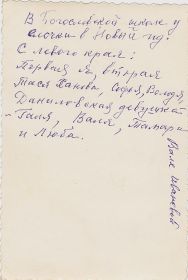 В Богословской школе у
елочки в Новый год.
С левого края:
Первая я, вторая
Тася Ханова, Софья, Володя,
Даниловская девушка
- Галя, Валя, Тамара
и Люба.
Вале Ивановой